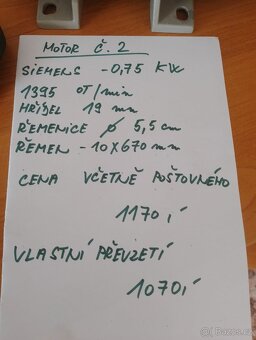 MOTOR Č. 2
SIEMENS - 0,75 KW
1395 OT/min
HŘÍDEL 19 mm
ŘEMENICE ⌀ 5,5 cm
ŘEMEN - 10 X 670 mm
CENA VČETNĚ POŠTOVNÉHO
1170,-
VLASTNÍ PŘEVZETÍ
1070,-